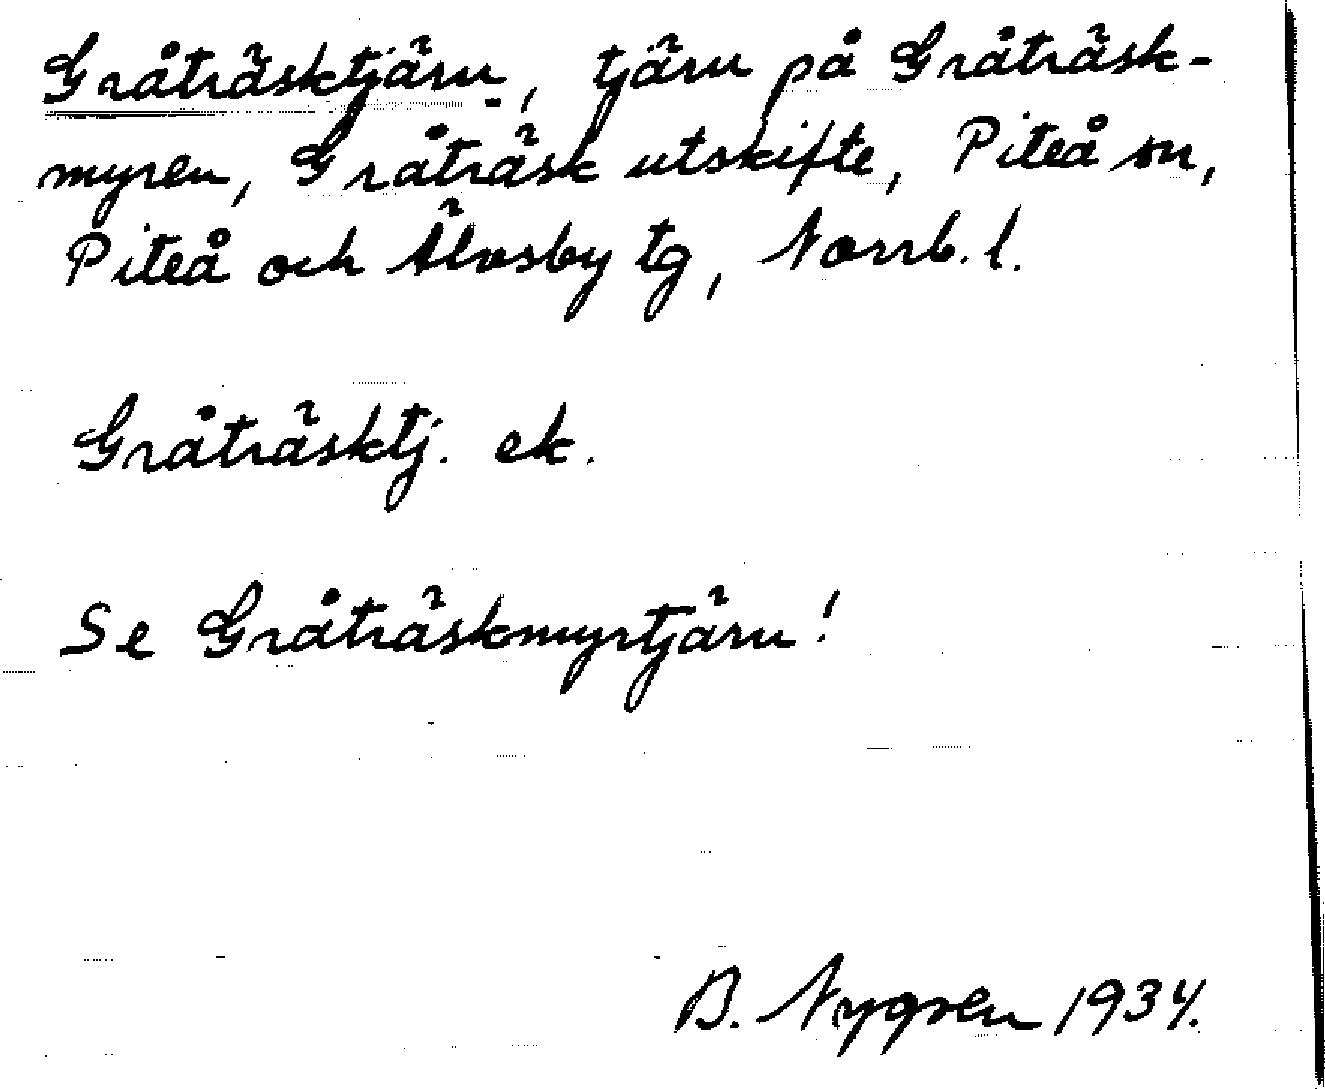 Gråträsktjärn, tjärn på Gråträsk-
myren, Gråträsk utskifte, Piteå sn,
Piteå och Älvsby tg, Norrb. l.
Gråträsktj. ek.
Se Gråträskmyrtjärn!
B. Nygren 1934.